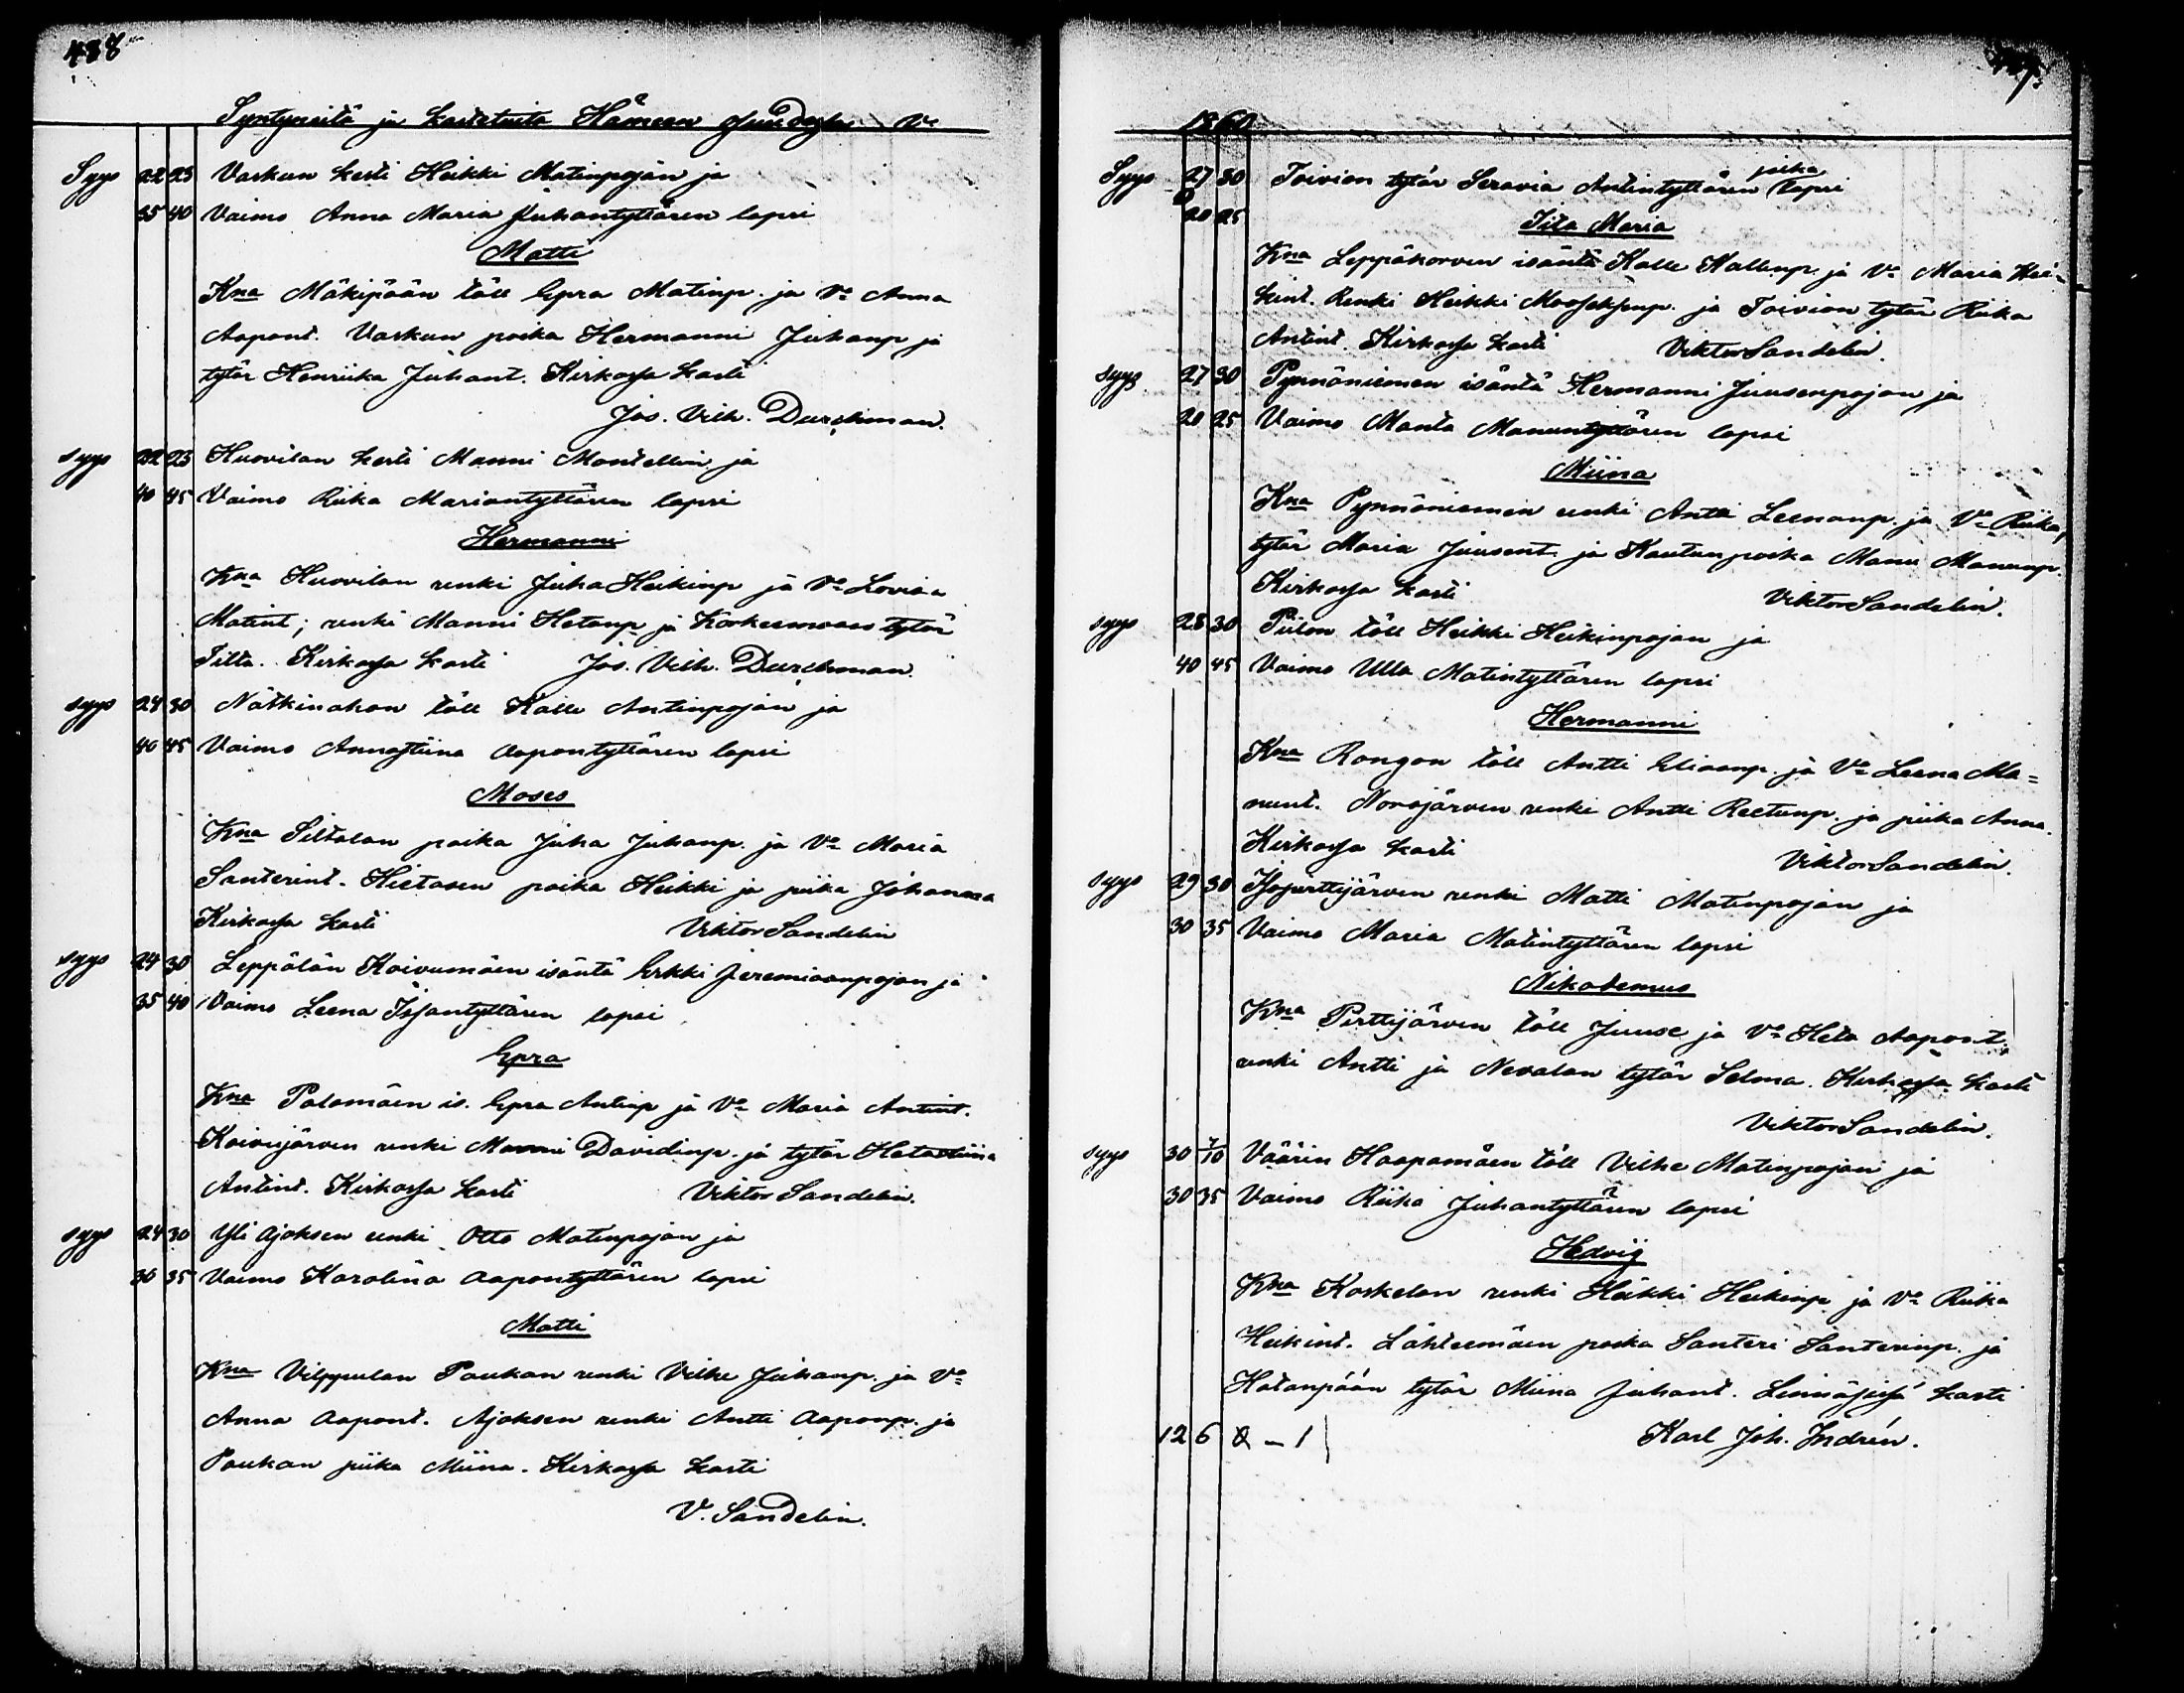 438
Syntyneitä ja kastetuita Hämeen Ve
Syys 22 23 Vaskun kesti Heikki Matinpojan ja
35 40 Vaimo Anna Maria Juhantyttären lapsi
Matti
Kna Mäkipään töll Epra Matinp. ja Vo Anna
Aapont. Vaskun poika Hermanni Juhanp ja
tytär Henriika Juhant. Kirkossa kasti
Jos. Vilh. Durchman.
syys 22 23 Huovilan kesti Manni Montellin ja
40 45 Vaimo Riika Mariantyttären lapsi
Hermanni
Kna Huovilan renki Juha Heikinp ja Vo Loviisa
Matint; renki Manni Hetanp ja Korkeemaas tytär
Tilta. Kirkossa kasti Jos. Vilh. Durchman.
syys 24 30 Nätkinahon töll Kalle Antinpojan ja
40 45 Vaimo Annastiina Aapontyttären lapsi
Moses
Kna Siltalan poika Juha Juhanp. ja Vo Maria
Santerint. Hietasen poika Heikki ja piika Johanna
Kirkossa kasti Viktor Sandelin
syys 24 30 Leppälän Koivumäen isäntä Erkki Jeremiaanpojan ja
35 40 Vaimo Leena Isjantyttären lapsi
Epra
Kna Palomäen is. Epra Antinp ja Vo Maria Antint.
Koivujärven renki Manni Davidinp. ja tytär Hetastiina
Antint. Kirkossa kasti Viktor Sandelin.
syys 24 30 Yli Ajoksen renki Otto Matinpojan ja
30 35 Vaimo Karolina Aapontyttären lapsi
Matti
Kna Vilppulan Paukan renki Vilhe Juhanp. ja Vo
Anna Aapont. Ajoksen renki Antti Aaponp. ja
Paukan piika Miina. Kirkossa kasti
V. Sandelin.
1860
Syys 27 30 Toivion tytär Seravia Antintyttären poika lapsi
20 25
Tilta Maria
Kna Leppäkorven isäntä Kalle Kallenp. ja Vo Maria Hei-
kint. Renki Heikki Mooseksenp. ja Toivion tytär Riika
Antint. Kirkossa kasti Viktor Sandelin.
syys 27 30 Pynnöniemen isäntä Hermanni Juusenpojan ja
20 25 Vaimo Manta Manuntyttären lapsi
Miina
Kna Pynnöniemen renki Antti Leenanp. ja Vo Riika,
tytär Maria Juusent. ja Kautun poika Manu Manunp.
Kirkossa kasti Viktor Sandelin.
syys 28 30 Piilon töll Heikki Heikinpojan ja
40 45 Vaimo Ulla Matintyttären lapsi
Hermanni
Kna Rongon töll Antti Eliaanp. ja Vo Leena Ma=
nunt. Norojärven renki Antti Reetunp. ja piika Anna.
Kirkossa kasti Viktor Sandelin.
syys 29 30 Isoperttijärven renki Matti Matinpojan ja
30 35 Vaimo Maria Matintyttären lapsi
Nikodemus
Kna Perttijärven töll Juuse ja Vo Heta Aapont.
renki Antti ja Nevalan tytär Selma. Kirkossa kasti
Viktor Sandelin.
syys 30 7/10 Väärin Haapamäen töll Vilhe Matinpojan ja
30 35 Vaimo Riika Juhantyttären lapsi
Hedvig
Kna Koskelan renki Heikki Heikinp ja Vo Riika
Heikint. Lähteemäen poika Santeri Santerinp. ja
Hatanpään tytär Miina Juhant. Linnassa kasti
12 6 Q - 1 Karl Joh. Indrén.